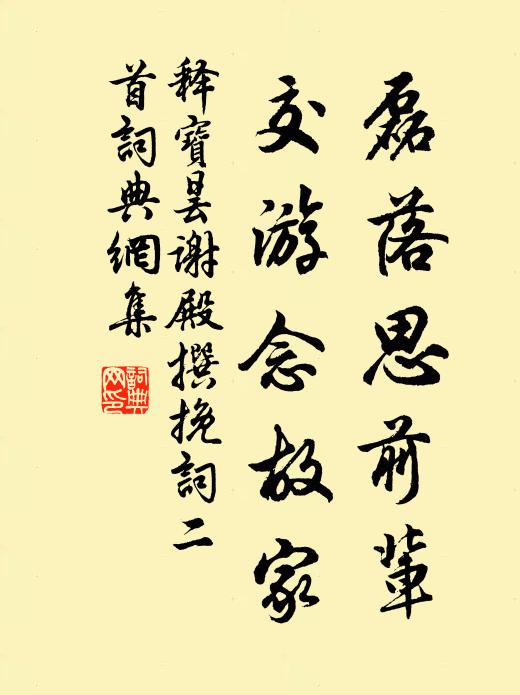 磊落思前輩
交游念故家
释寶曇谢殿撰挽詞二
首詞典網集
詞典
网印